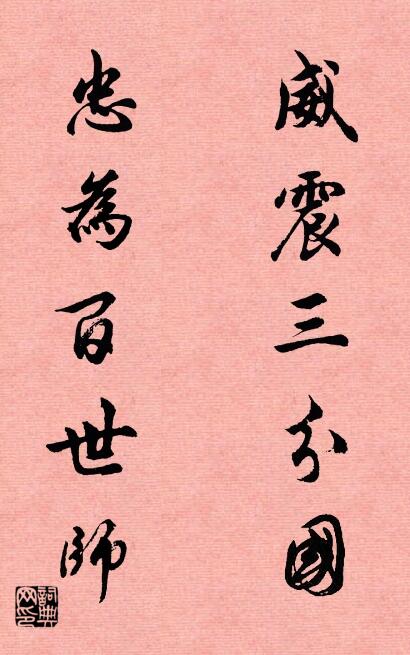 威震三分國
忠為百世師
詞典網印